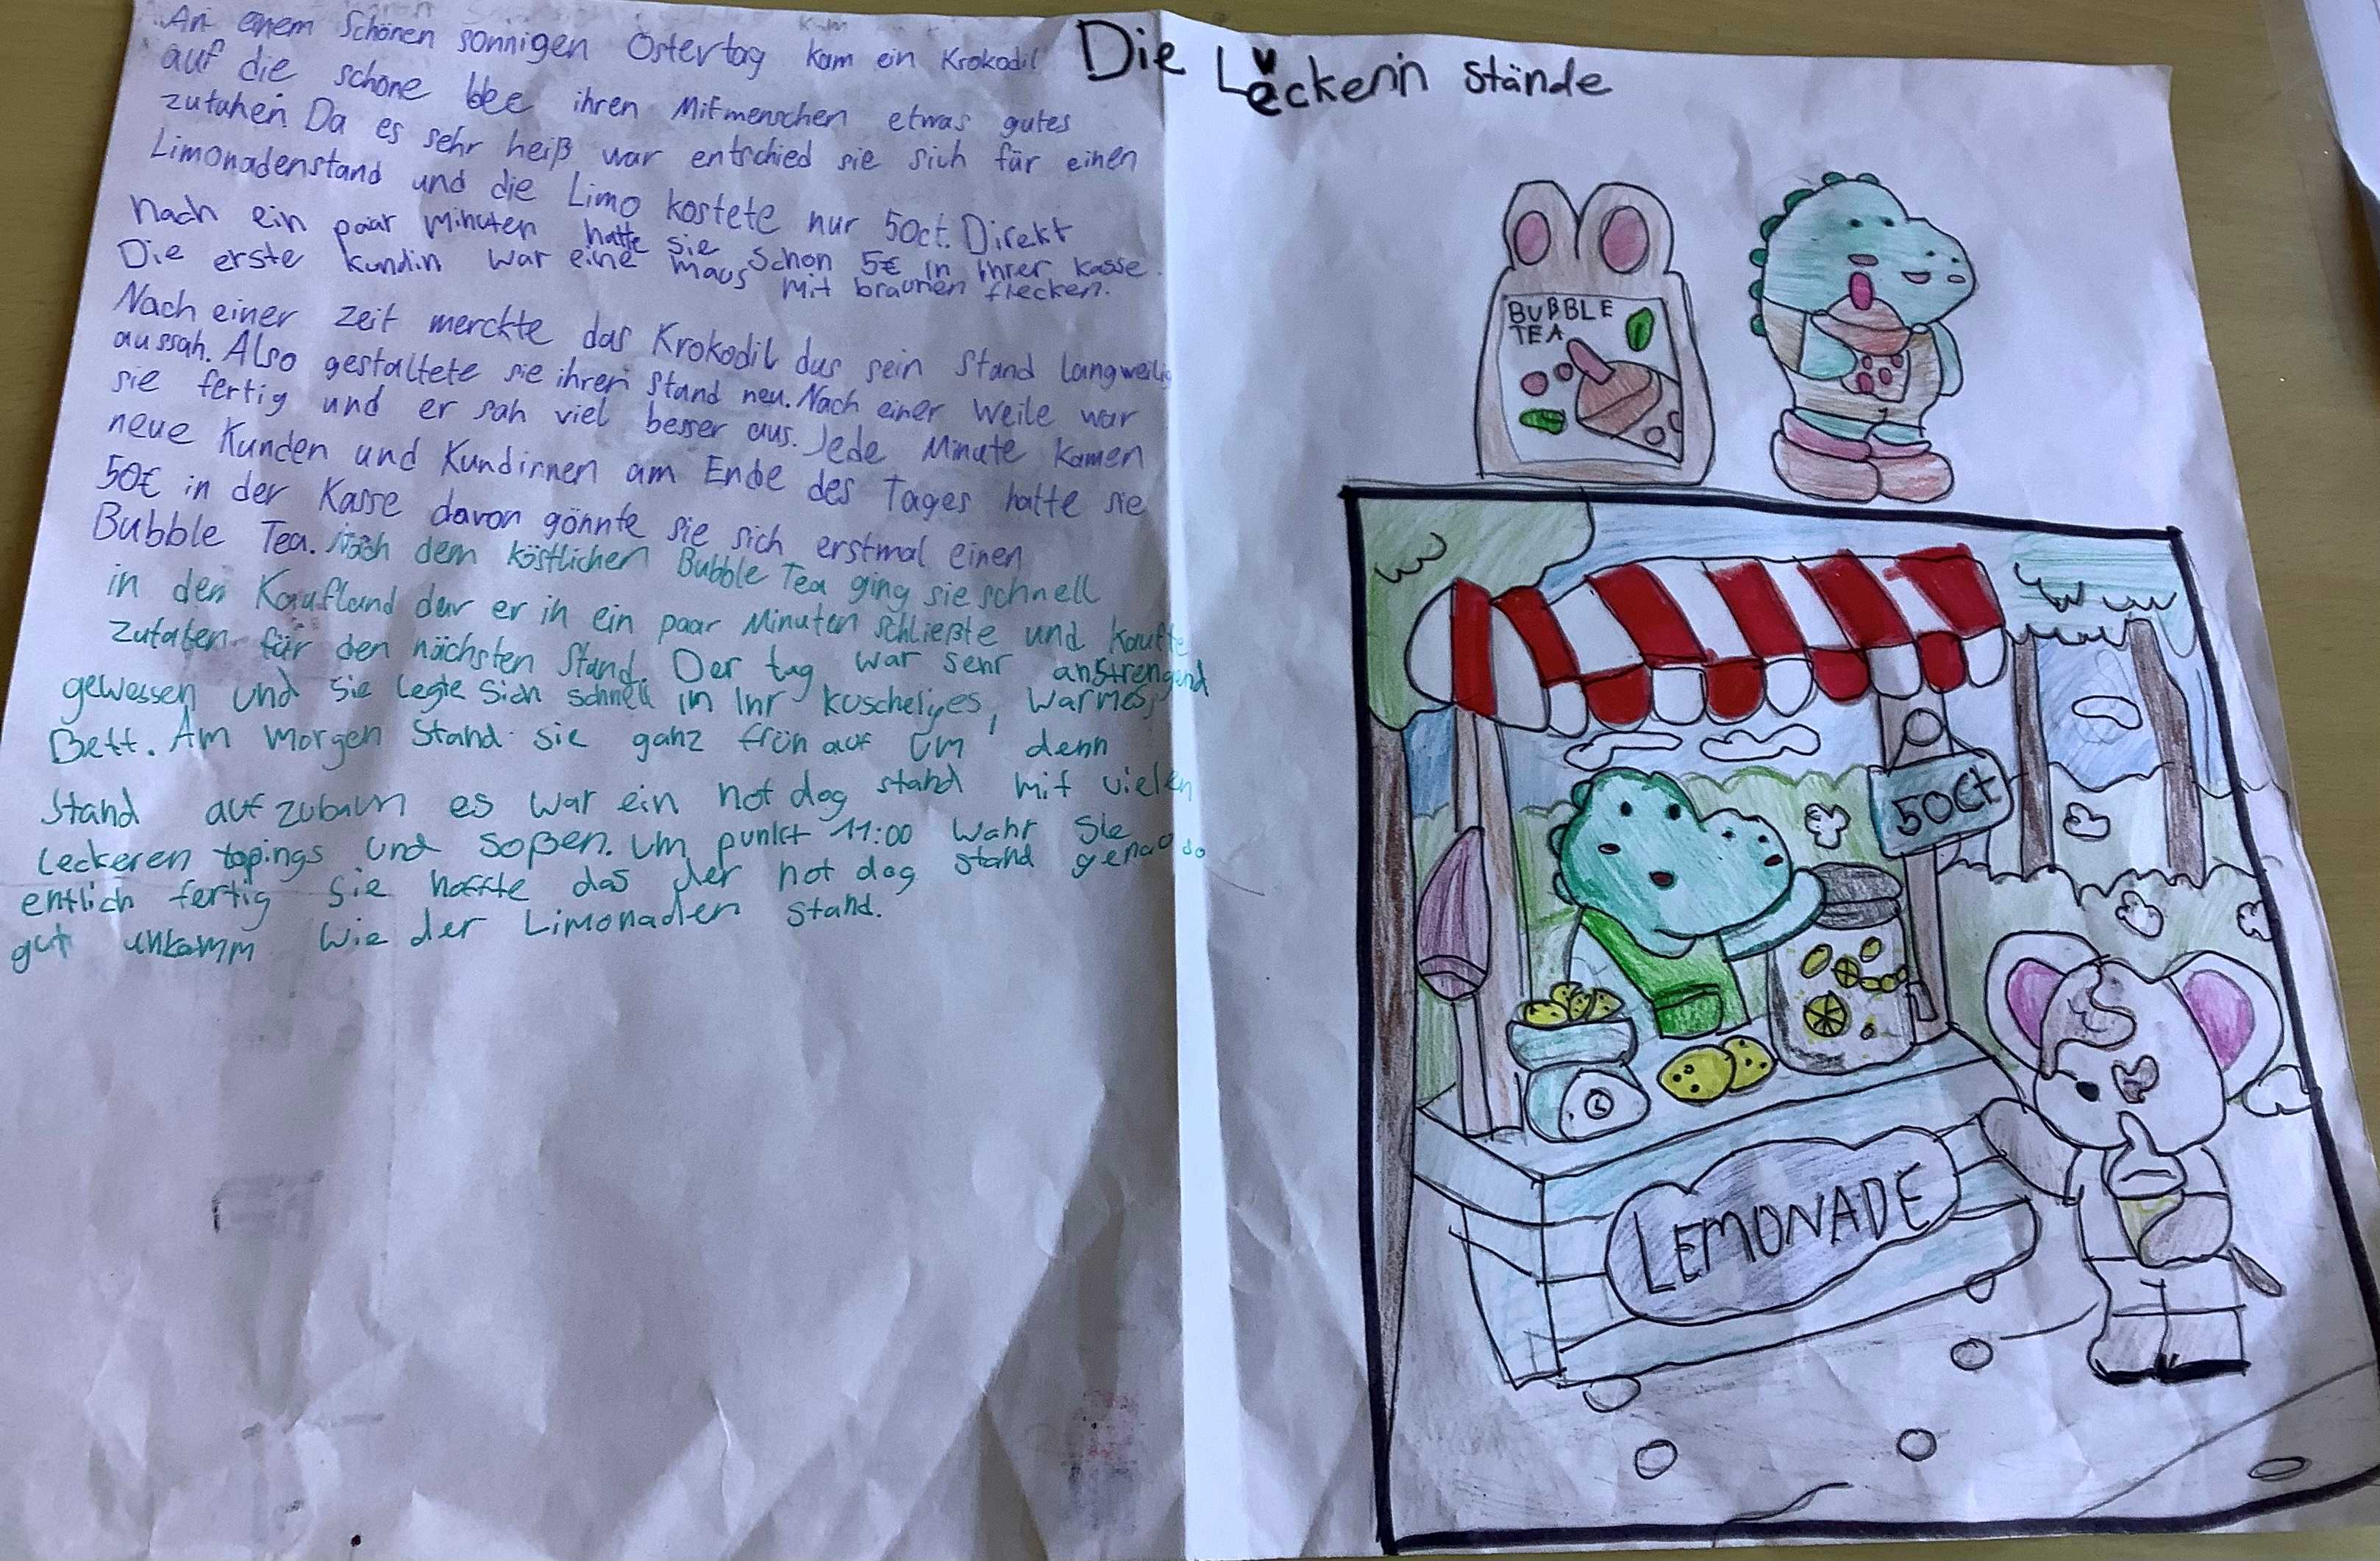 Die Leckern Stände
An einem Schönen sonnigen Ostertag kam ein Krokodil
auf die schöne Idee ihren Mitmenschen etwas gutes
zutuhen. Da es sehr heiß war entschied sie sich für einen
Limonadenstand und die Limo kostete nur 50ct. Direkt
nach ein paar Minuten hatte sie schon 5€ in ihrer Kasse.
Die erste Kundin war eine Maus mit braunen flecken.
Nach einer Zeit merckte das Krokodil das sein Stand langweilig
aussah. Also gestaltete sie ihren Stand neu. Nach einer Weile war
sie fertig und er sah viel besser aus. Jede Minute kamen
neue Kunden und Kundinnen am Ende des Tages hatte sie
50€ in der Kasse davon gönnte sie sich erstmal einen
Bubble Tea. Nach dem köstlichen Bubble Tea ging sie schnell
in den Kaufland dar er in ein paar Minuten schließte und kaufte
Zutaten für den nächsten Stand. Der tag war sehr anstrengend
gewessen und sie legte sich schnell in Ihr kuscheliges, warmes,
Bett. Am morgen Stand sie ganz früh auf um denn
Stand aufzubaun es war ein hot dog stand mit vielen
leckeren topings und soßen. Um punkt 11:00 wahr sie
entlich fertig sie hoffte das der hot dog stand genauso
gut ankamm wie der Limonaden stand.
BUBBLE
TEA
50Ct
LEMONADE